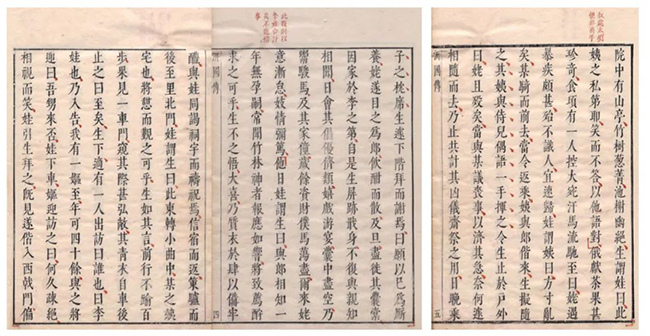 子之枕席生遂下階拜而謝焉曰願以已為厮
養姥遂目之為郎飲酣而散及旦盡徙其囊橐
因家於李之第自是生屏跡戢身不復與親知
相聞日會其倡優儕類嬉戲游宴囊中盡空乃
鬻駿馬及其家僮歲餘資財僕馬蕩盡爾來姥
意漸怠妓情彌篤他日娃謂生曰與郎相知一
年無孕嗣常聞竹林神者報應如響將致薦酹
求之可乎生不之悟大喜乃質衣於肆以備牢
四
醴與娃同謁祠宇而禱祝焉信宿而返策驢而
後至里北門娃謂生曰此東轉小曲中某之姨
宅也將憩而覲之可乎生如其言前行不踰百
步果見一車門窺其際甚弘敞其青衣自車後
止之曰至矣生下適有一人出訪曰誰也曰李
娃也乃入告俄有一嫗至年可四十餘與之將
迎曰吾甥來否娃下車嫗迎訪之曰何久疎絕
相視而笑娃引生拜之既見遂偕入西戟門偏
院中有山亭竹樹葱蒨池榭幽絕生謂娃曰此
姨之私第耶笑而不答以他語對俄獻茶果甚
珍奇食頃有一人控大宛汗馬流馳至曰姥遇
暴疾頗甚殆不識人宜速歸娃謂姨曰方寸亂
矣某騎而前去當令返乘姨與郎偕來生擬隨
之其姨與侍兒偶語一手揮之令生止於戶外
曰姥且歿矣當與某議喪事以濟其急奈何遽
相隨而去乃止共計其凶儀齋祭之用日晚乘
五